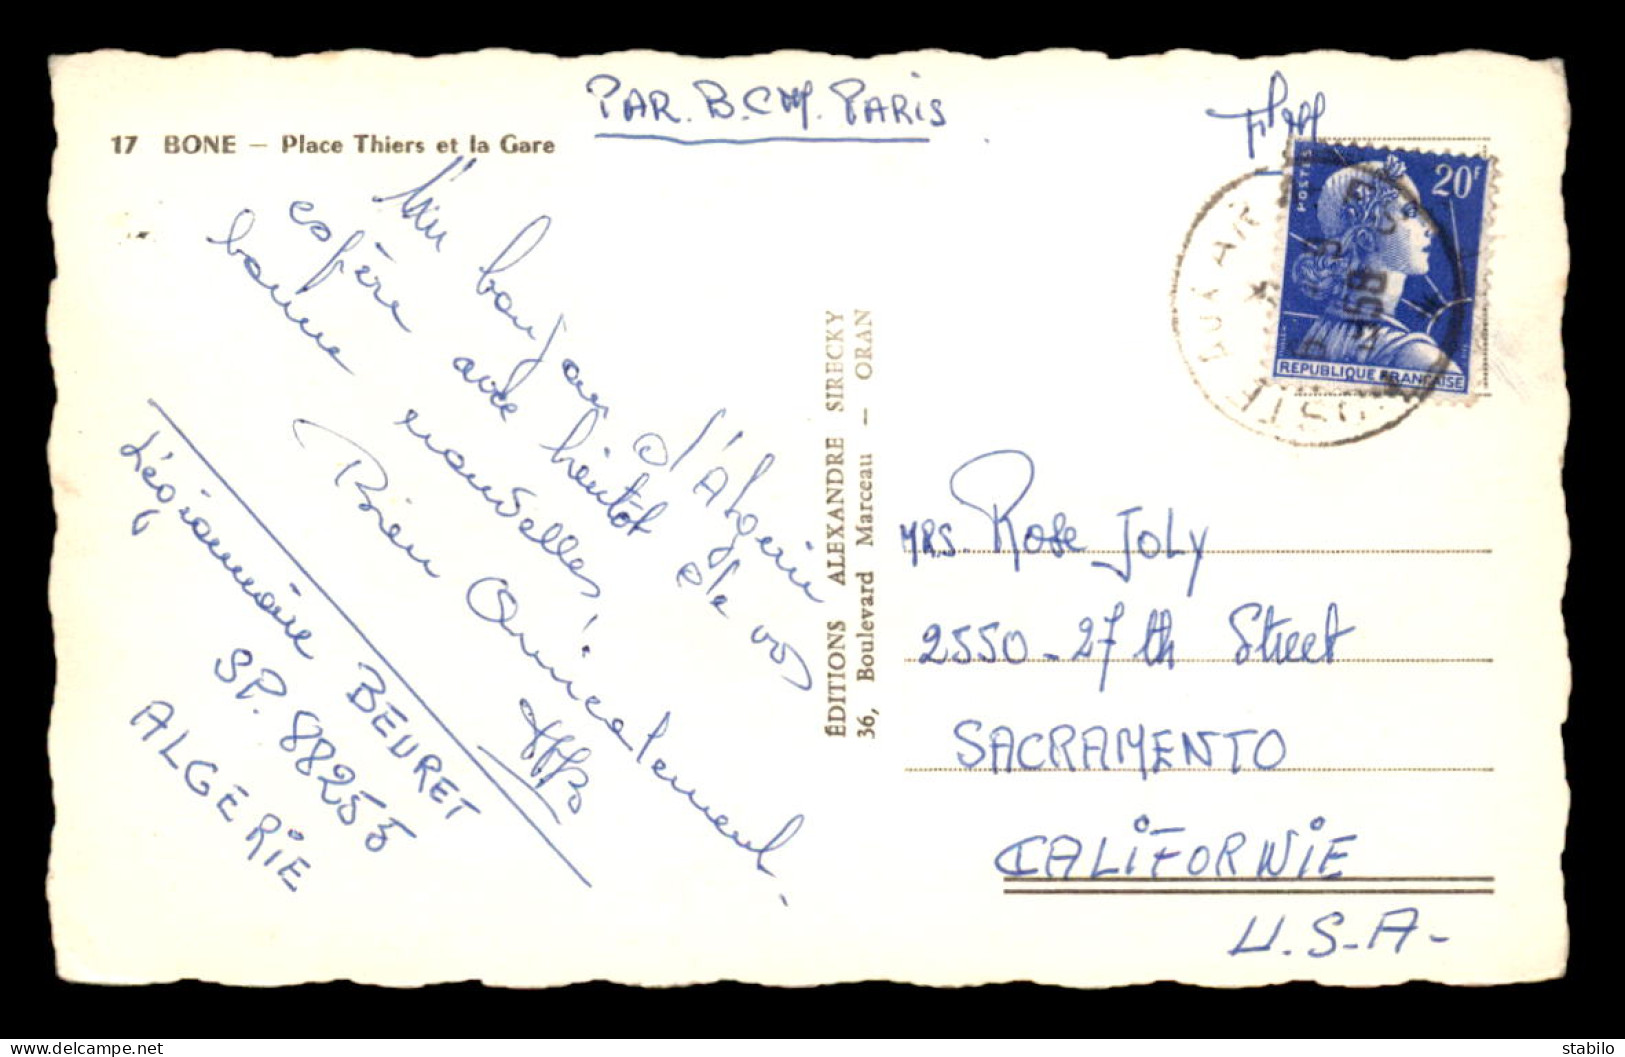 PAR. B.C.M. PARIS
17 BONE — Place Thiers et la Gare
Un bonjour d'Algérie
espère avoir bientôt de vos
bonne nouvelles,
Bien Amicalement.
Légionnaire BEURET
SP. 88255
ALGÉRIE
ÉDITIONS ALEXANDRE SIRECKY
36, Boulevard Marceau — ORAN
POSTES
20F
REPUBLIQUE FRANÇAISE
MRS. Rose JOLY
2550-27th Street
SACRAMENTO
CALiFORNiE
U.S.A-
stabilo